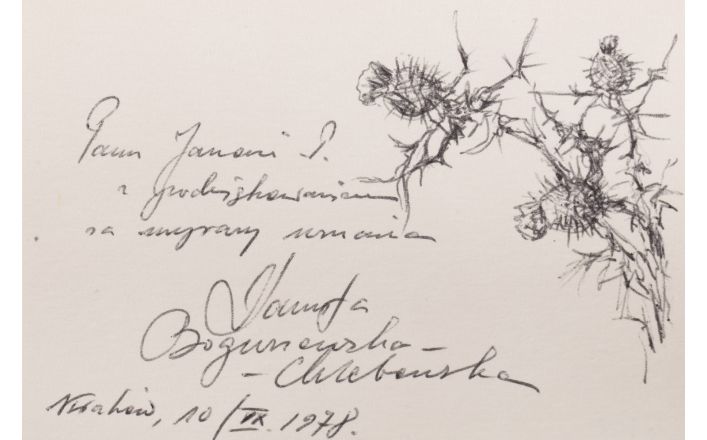 Panu Janowi P.
z podziękowaniem
za wyrazy uznania
Danuta
Boguszewska-
-Chlebowska
Kraków, 10/IX. 1978.